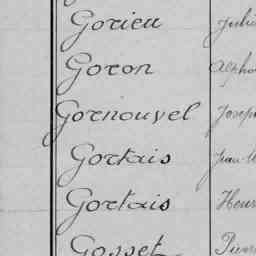 Gorieu Juli
Goron Alpho
Gornouvel Joseph
Gortais Jean M
Gortais Henri
Gosset Pierre